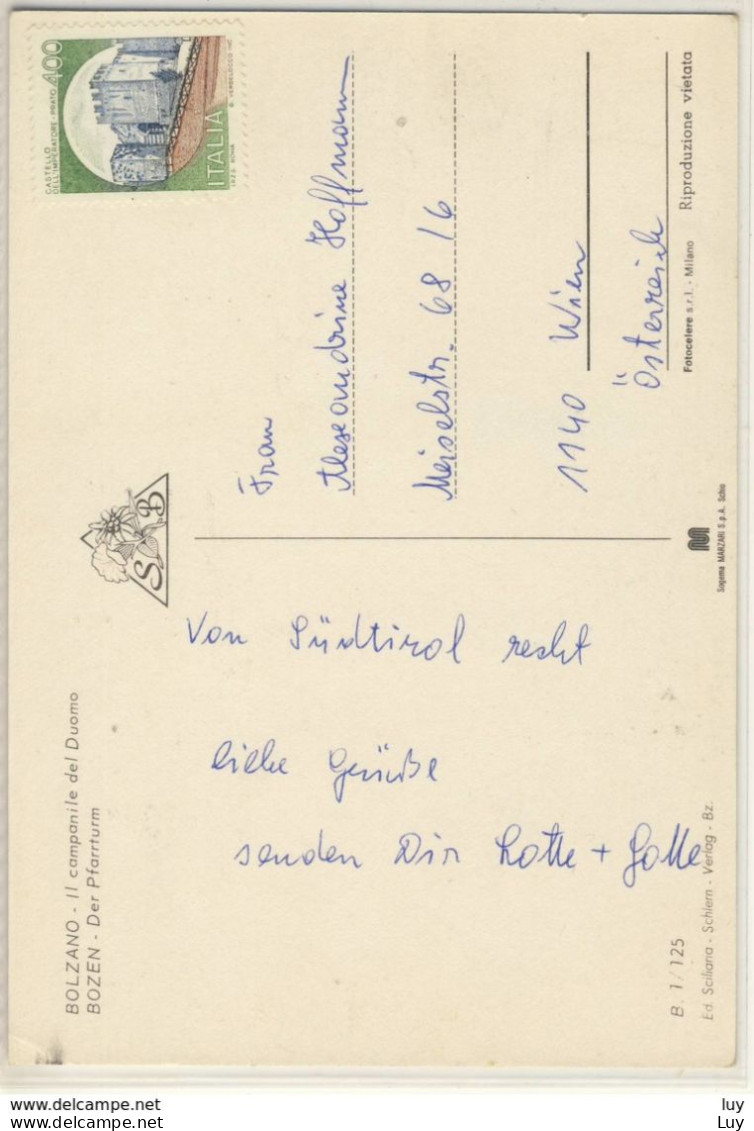 BOLZANO - Il campanile del Duomo
BOZEN - Der Pfarrturm
Von Südtirol recht
liebe Grüße
senden Dir Lotte +
B. 1/125
Ed. Sciliaria - Schlern - Verlag - Bz.
S B
CASTELLO
DELL'IMPERATORE - PRATO
400
ITALIA
I.P.Z.S. ROMA
Frau
Alexandrine Hoffmann
Meiselstr. 68/6
1140 Wien
Österreich
Fotocelere s.r.l. - Milano Riproduzione vietata
Sagema MARZARI S.p.A. Schio
luy
Luy